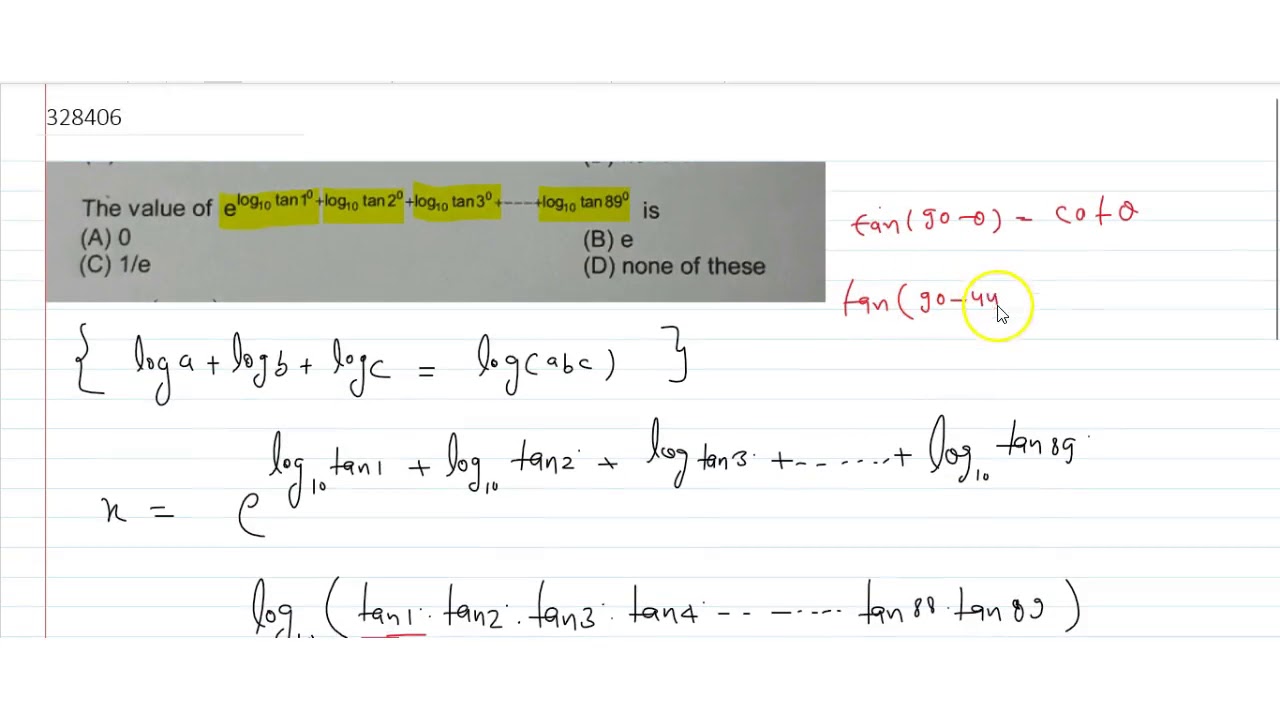 328406
The value of e^log₁₀ tan1⁰+log₁₀ tan2⁰+log₁₀ tan3⁰+-----+log₁₀ tan89⁰ is
(A) 0 (B) e
(C) 1/e (D) none of these
tan(90-θ) = cotθ
tan(90-44
{ log a + log b + log c = log(abc) }
x = e^log₁₀ tan1 + log₁₀ tan2 + log tan3 + ........ + log₁₀ tan89
log₁₀ (tan1. tan2. tan3. tan4 -- -...... tan88. tan89)